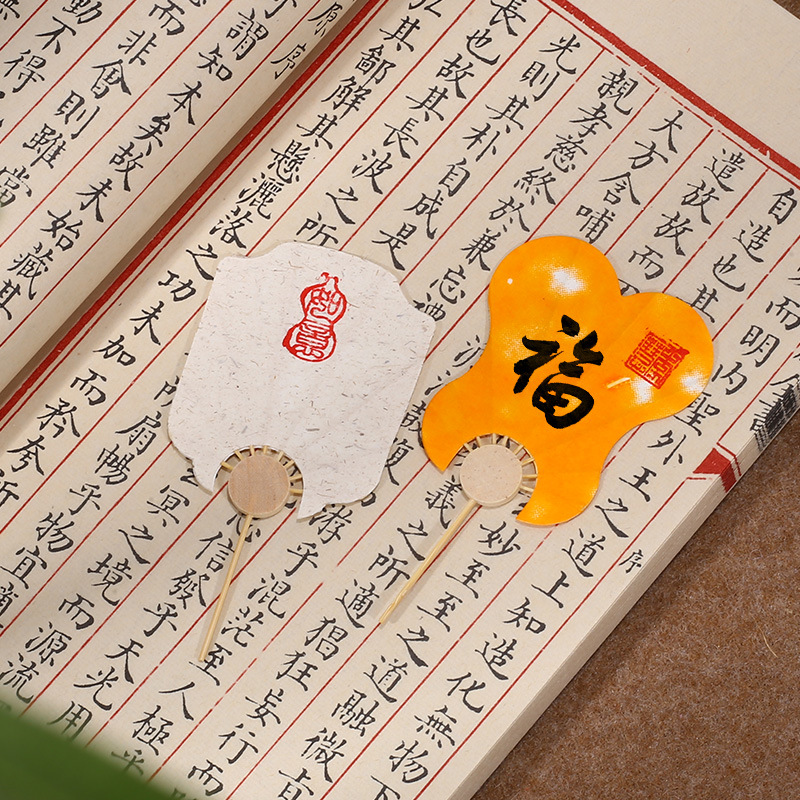 序
而明內聖外王之道上知造化無物下
自造也其
妙至至之道融微旨
遣放放而
義之所適猖狂妄行而
大方含哺
游乎混茫至人極乎
親孝慈終於兼忘禮
復
信發乎天光用
光則其朴自成是
冥之境而源流
長也故其長波之所
所扇暢乎物宜適
其鄙解其懸灑落之功未加而矜夸所
原序
謂知本矣故未始藏其
而非會則雖當
動不得
如意
福